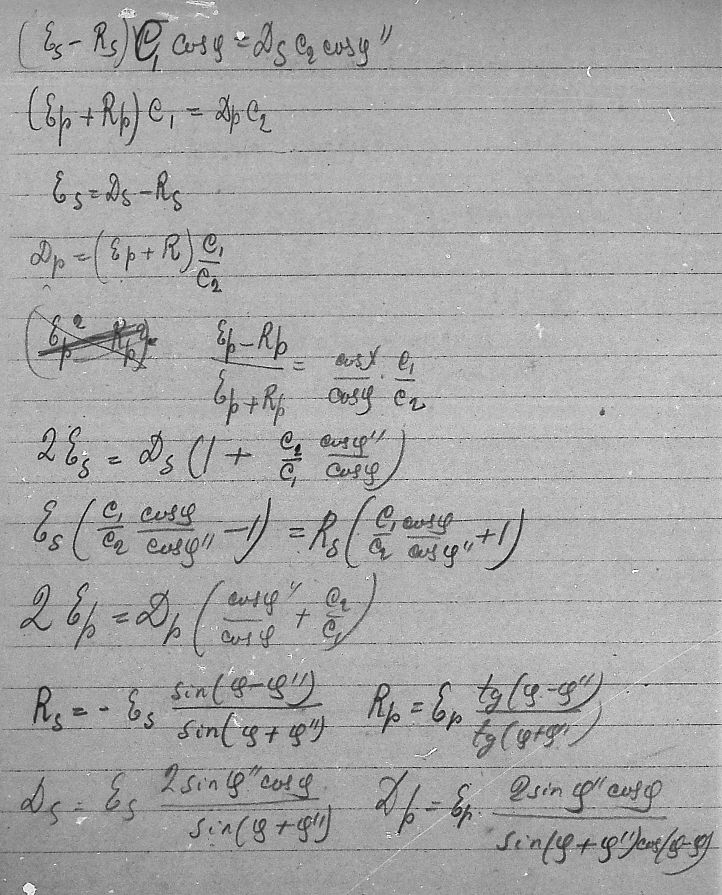 (Es - Rs) C₁ cosφ = Ds C₂ cosφ"
(Ep + Rp) C₁ = Dp C₂
Es = Ds - Rs
Dp = (Ep + R) C₁/C₂
(Ep² - Rp²) (Ep - Rp)/(Ep + Rp) = cosχ/cosφ · C₁/C₂
2Es = Ds (1 + C₂/C₁ cosφ"/cosφ)
Es (C₁/C₂ cosφ/cosφ" - 1) = Rs (C₁/C₂ cosφ/cosφ" + 1)
2Ep = Dp (cosφ"/cosφ + C₂/C₁)
Rs = - Es sin(φ-φ")/sin(φ+φ") Rp = Ep tg(φ-φ")/tg(φ+φ")
Ds = Es 2sinφ"cosφ/sin(φ+φ") Dp = Ep · 2sinφ"cosφ/sin(φ+φ")cos(φ-φ)